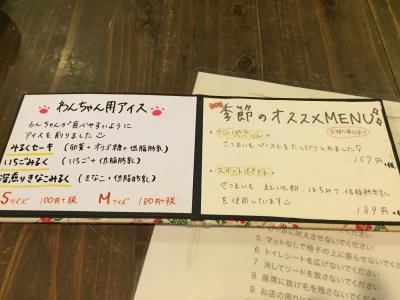 わんちゃん用アイス
わんちゃんが食べやすいように
アイスを削りました
みるくセーキ (卵黄+オリゴ糖+低脂肪乳)
いちごみるく (いちご+低脂肪乳)
深煎りきなこみるく (きなこ+低脂肪乳)
Sサイズ 100円+税 Mサイズ 180円+税
季節のオススメMENU
さつまいもペーストをたっぷり入れました
157円+税
スイートポテト
さつまいも 紅いも粉 はちみつ 低脂肪牛乳
を使用しています
189円+税
に吠えさせないでください
5. マットなしで椅子の上に座らせないでください
6. トイレシートを広げないでください
7. 決してリードを放さないでください
8. 座席に抜け毛を残さないでください
9. お店の周り